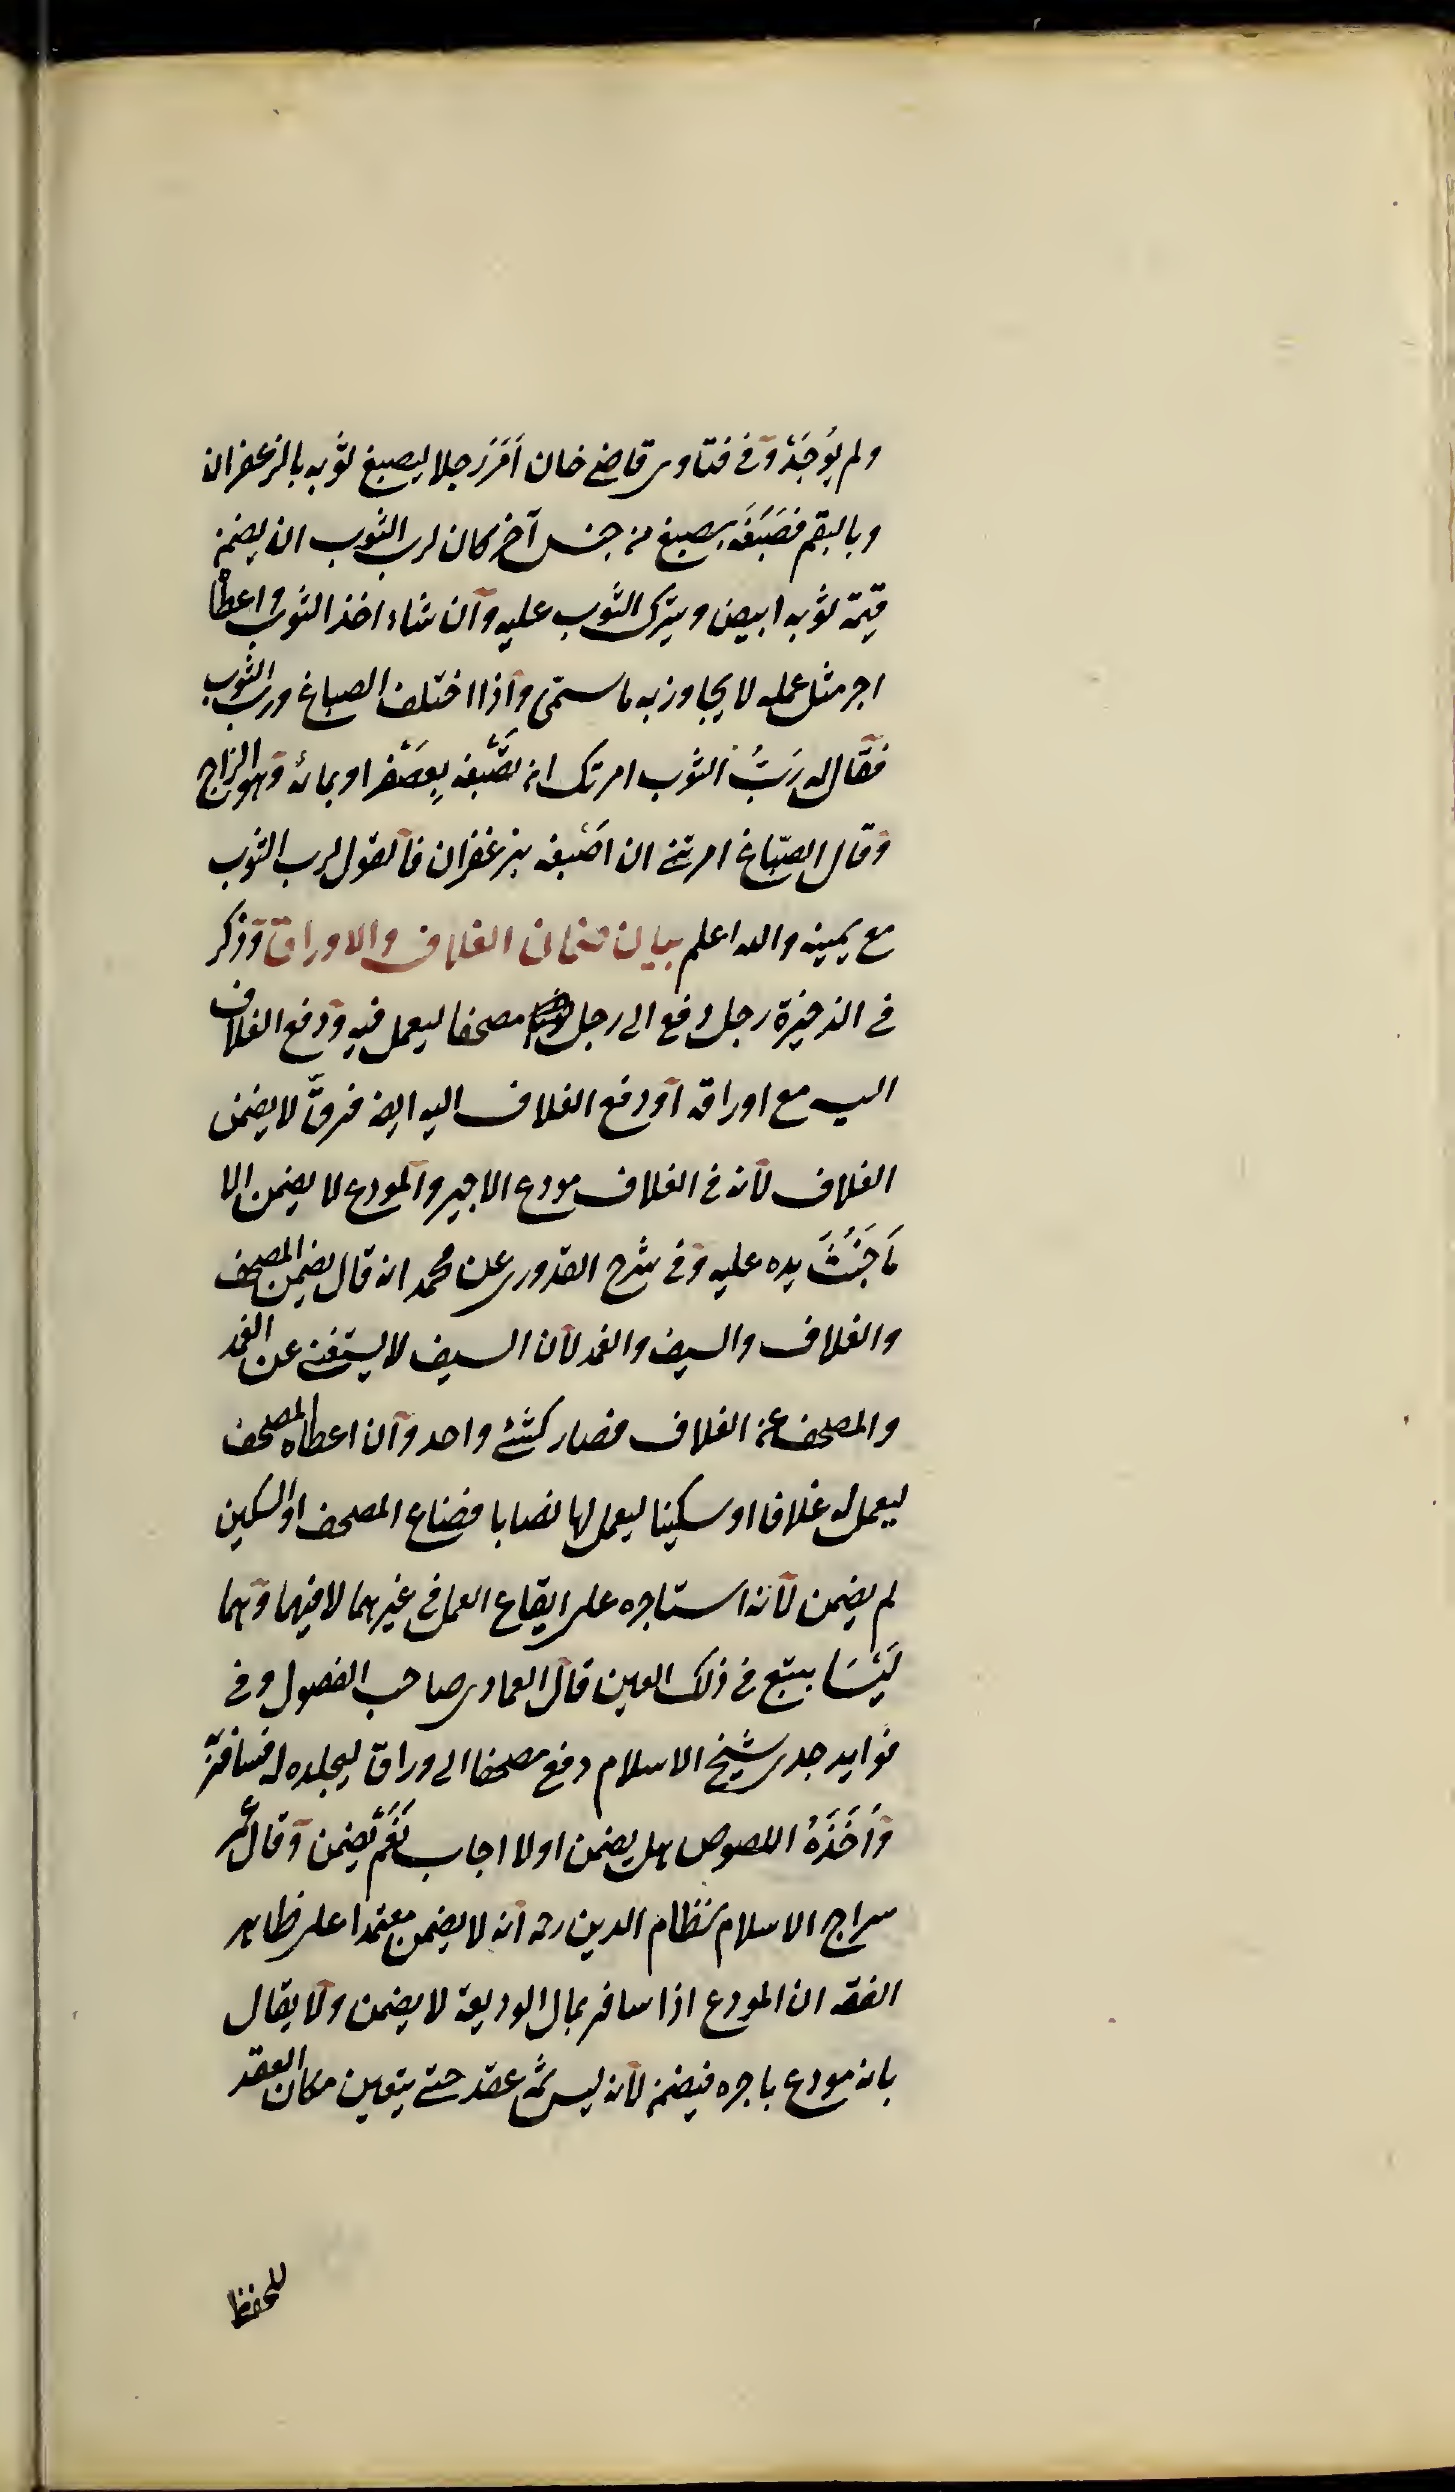 ولم يُوجَدْ وفى فتاوى قاضى خان اَمَرَ رجلا ليصبغ ثوبه بالزعفران
وبالبقم فصَبَغَه بصبغ من جنس آخر كان لرب الثوب ان يضمن
قيمة ثوبه ابيض ويترك الثوب عليه وان شاء اخذ الثوب واعطا
اجر مثل عمله لا يجاوز به ما سمّى واذا اختلف الصباغ ورب الثوب
فقال له رَبُّ الثوب امرتك ان تصْبَغه بعصْفر او بمائه وهو الزاج
وقال الصبّاغ امرتنى ان اصْبَغه بزعفران فالقول لرب الثوب
مع يمينه والله اعلم بيان ضمان الغلاف والاوراق وذكر
فى الذخيرة رجل دفع الى رجل مصحفا ليعمل فيه ودفع الغلاف
اليه مع اوراقه او دفع الغلاف اليه ايضا فرقّ لا يضمن
الغلاف لانه فى الغلاف مودع الاجير والمودع لا يضمن الا
مَا جَنَتْ يده عليه وفى شرح القدورى عن محمد انه قال يضمن المصحف
والغلاف والسيف والغمد لان السيف لا يستغنى عن الغمد
والمصحف عن الغلاف فصار كشئ واحد وان اعطاه المصحف
ليعمل له غلافا او سكينا ليعمل لها نصابا فضاع المصحف او السكين
لم يضمن لانه استاجره على ايقاع العمل فى غيرهما لا فيهما وهما
لَيْسَا بتبع فى ذلك العين قال العمادى صاحب الفصول وفى
فوايد جدى شيخ الاسلام دفع مصحفا الى وراق ليجلده له فسافر به
وَأخَذَهُ اللصوص هل يضمن اولا اجاب نَعَمْ يضمن وقال عمى
سراج الاسلام نظام الدين رحه انه لا يضمن معتمدا على ظاهر
الفقه ان المودع اذا سافر بمال الوديعة لا يضمن ولا يقال
بانه مودع باجره فيضمن لانه ليس ثمه عقد حتى يتعين مكان العقد
للحفظ